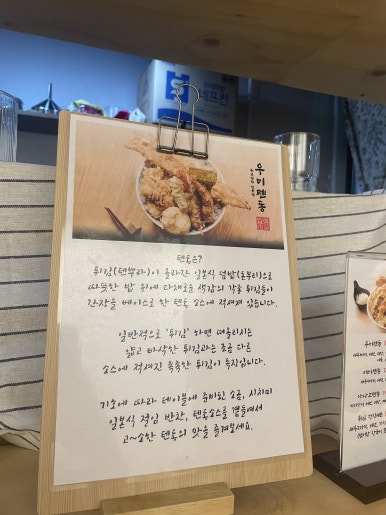 우미텐동
텐동은?
튀김(텐뿌라)이 올라간 일본식 덮밥(돈부리)으로
따뜻한 밥 위에 다채로운 색감의 각종 튀김들이
간장을 베이스로 한 텐동 소스에 적셔져 있습니다.
일반적으로 "튀김" 하면 떠올리시는
얇고 바삭한 튀김과는 조금 다른
소스에 적셔진 촉촉한 튀김이 특징입니다.
기호에 따라 테이블에 준비된 소금, 시치미
일본식 절임 반찬, 텐동소스를 곁들여서
고~소한 텐동의 맛을 즐겨보세요.
우미텐동